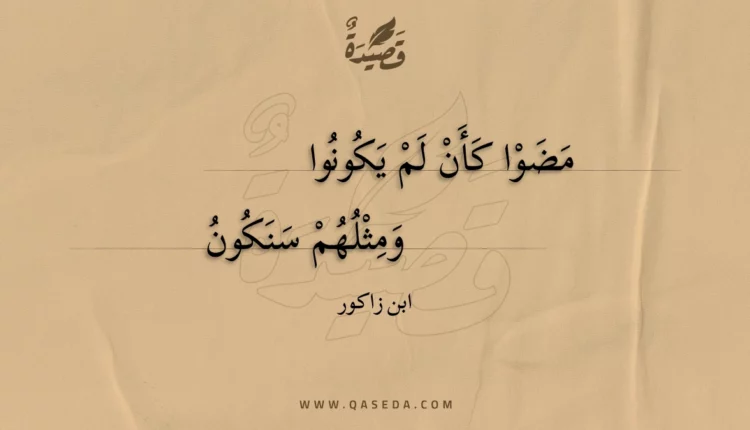 قَصِيدَةٌ
مَضَوْا كَأَنْ لَمْ يَكُونُوا
وَمِثْلُهُمْ سَنَكُونُ
ابن زاكور
WWW.QASEDA.COM